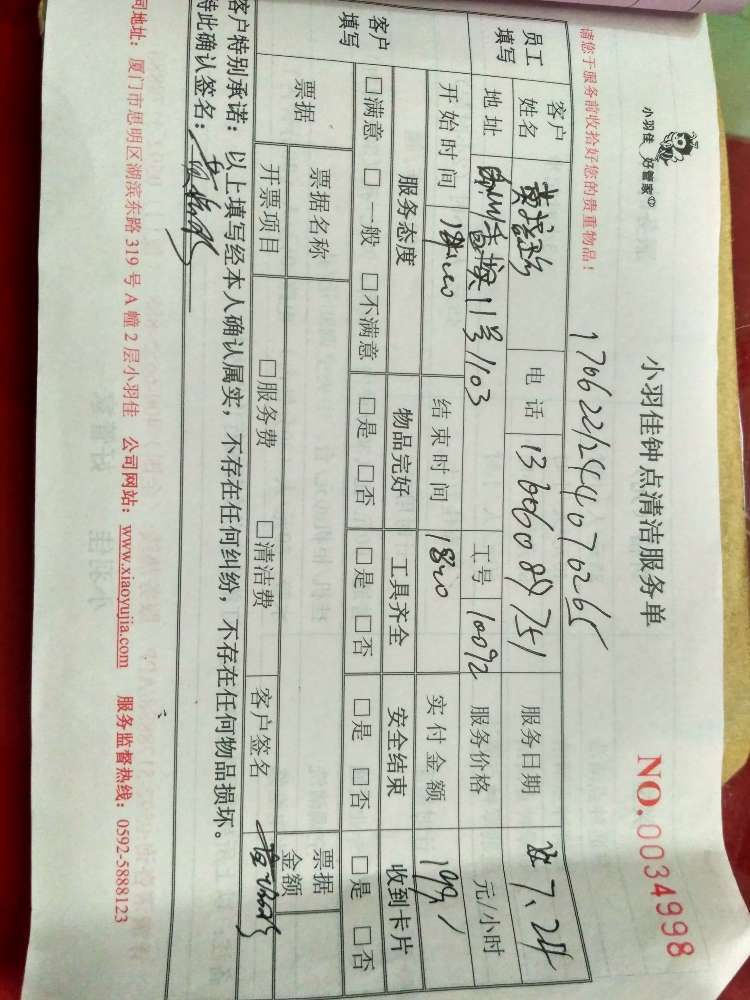 小羽佳 好管家
小羽佳钟点清洁服务单
NO.0034998
请您于服务前收拾好您的贵重物品！
员工填写
客户姓名 电话 13606089751 服务日期 7.24
地址 11号1103 工号 10092 服务价格 元/小时
开始时间 结束时间 18:00 实付金额
客户填写
服务态度 物品完好 工具齐全 安全结束 收到卡片
□满意 □一般 □不满意 □是 □否 □是 □否 □是 □否 □是 □否
票据 票据名称 票据金额
开票项目 □服务费 □清洁费 客户签名
客户特别承诺：以上填写经本人确认属实，不存在任何纠纷，不存在任何物品损坏。
特此确认签名：
司地址：厦门市思明区湖滨东路319号A幢2层小羽佳 公司网站：www.xiaoyujia.com 服务监督热线：0592-5888123